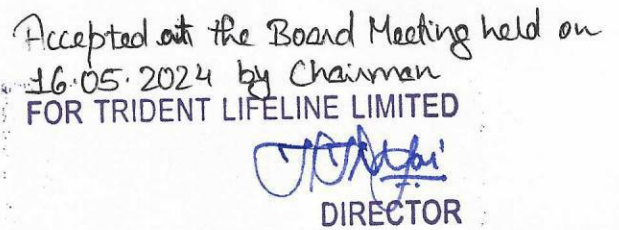 Accepted at the Board Meeting held on
16.05.2024 by Chairman
FOR TRIDENT LIFELINE LIMITED
DIRECTOR